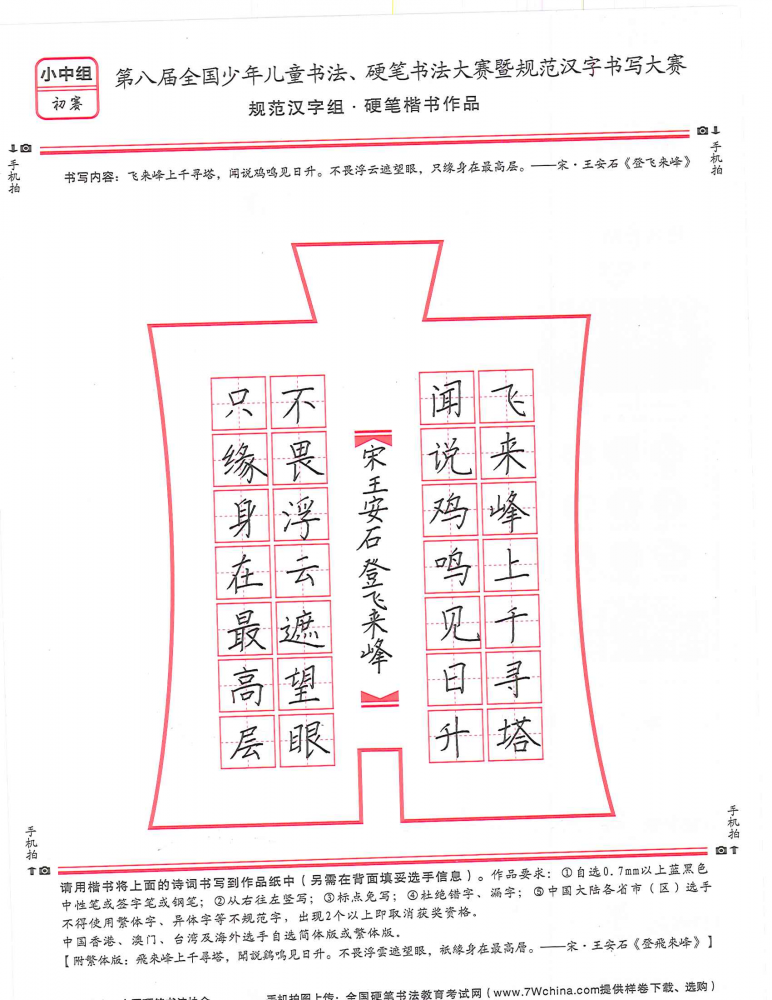 小中组
初赛
第八届全国少年儿童书法、硬笔书法大赛暨规范汉字书写大赛
规范汉字组·硬笔楷书作品
手机拍
手机拍
书写内容：飞来峰上千寻塔，闻说鸡鸣见日升。不畏浮云遮望眼，只缘身在最高层。——宋·王安石《登飞来峰》
飞来峰上千寻塔
闻说鸡鸣见日升
宋王安石登飞来峰
不畏浮云遮望眼
只缘身在最高层
手机拍
手机拍
请用楷书将上面的诗词书写到作品纸中（另需在背面填妥选手信息）。作品要求：①自选0.7mm以上蓝黑色
中性笔或签字笔或钢笔；②从右往左竖写；③标点免写；④杜绝错字、漏字；⑤中国大陆各省市（区）选手
不得使用繁体字、异体字等不规范字，出现2个以上即取消获奖资格。
中国香港、澳门、台湾及海外选手自选简体版或繁体版。
【附繁体版：飛來峰上千尋塔，聞説鷄鳴見日升。不畏浮雲遮望眼，祇緣身在最高層。——宋·王安石《登飛來峰》】
手机拍图上传：全国硬笔书法教育考试网（www.7Wchina.com提供样卷下载、选购）